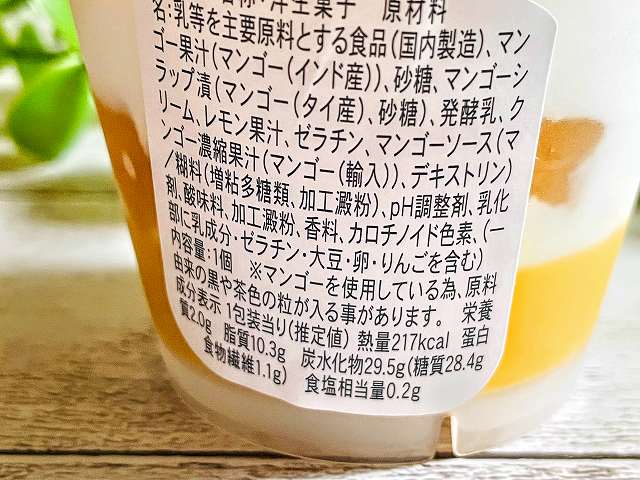 名称:洋生菓子 原材料
名:乳等を主要原料とする食品(国内製造)、マン
ゴー果汁(マンゴー(インド産))、砂糖、マンゴーシ
ラップ漬(マンゴー(タイ産)、砂糖)、発酵乳、ク
リーム、レモン果汁、ゼラチン、マンゴーソース(マ
ンゴー濃縮果汁(マンゴー(輸入))、デキストリン)
/糊料(増粘多糖類、加工澱粉)、pH調整剤、乳化
剤、酸味料、加工澱粉、香料、カロチノイド色素、(一
部に乳成分・ゼラチン・大豆・卵・りんごを含む)
内容量:1個 ※マンゴーを使用している為、原料
由来の黒や茶色の粒が入る事があります。 栄養
成分表示 1包装当り(推定値) 熱量217kcal 蛋白
質2.0g 脂質10.3g 炭水化物29.5g(糖質28.4g
食物繊維1.1g) 食塩相当量0.2g